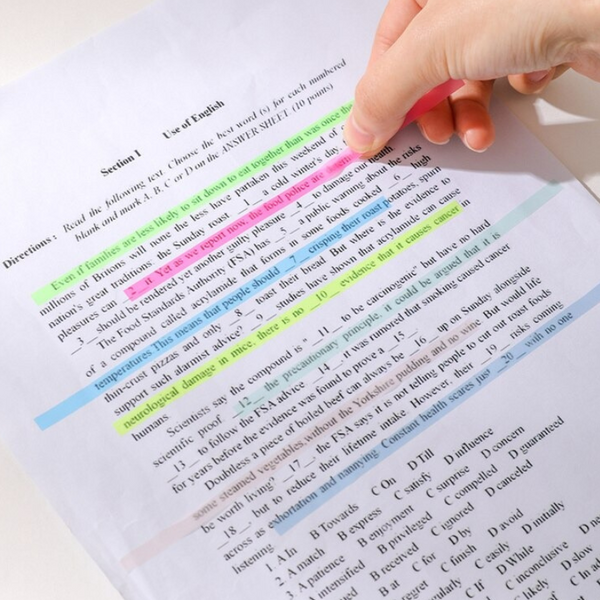 Section I Use of English
Directions: Read the following text. Choose the best word (s) for each numbered
blank and mark A, B, C or D on the ANSWER SHEET. (10 points)
Even if families are less likely to sit down to eat together than was once the
millions of Britons will none the less have partaken this weekend of
nation's great traditions: the Sunday roast. _1_ a cold winter's day,
pleasures can _2_ it. Yet as we report now, the food police are
_3_ should be rendered yet another guilty pleasure _4_ to damage our health
The Food Standards Authority (FSA) has _5_ a public warning about the risks
of a compound called acrylamide that forms in some foods cooked _6_ high
temperatures. This means that people should _7_ crisping their roast potatoes, spurn
thin-crust pizzas and only _8_ toast their bread. But where is the evidence to
support such alarmist advice? _9_ studies have shown that acrylamide can cause
neurological damage in mice, there is no _10_ evidence that it causes cancer in
humans
Scientists say the compound is " _11_ to be carcinogenic" but have no hard
scientific proof. _12_ the precautionary principle, it could be argued that it is
_13_ to follow the FSA advice. _14_, it was rumored that smoking caused cancer
for years before the evidence was found to prove a _15_.
Doubtless a piece of boiled beef can always be _16_ up on Sunday alongside
some steamed vegetables without the Yorkshire pudding and no wine. But would life
be worth living? _17_, the FSA says it is not telling people to cut out roast foods
_18_, but to reduce their lifetime intake. However, their _19_ risks coming
across as exhortation and nannying. Constant health scares just _20_ with no one
listening.
1. A In B Towards C On D Till
2. A match B express C satisfy D influence
3. A patience B enjoyment C surprise D concern
4. A intensified B privileged C compelled D guaranteed
B received C ignored D canceled
B at C for D by D avoid
regret C finish D initially
C easily
C If D While
C inconclusive
C likely D slow